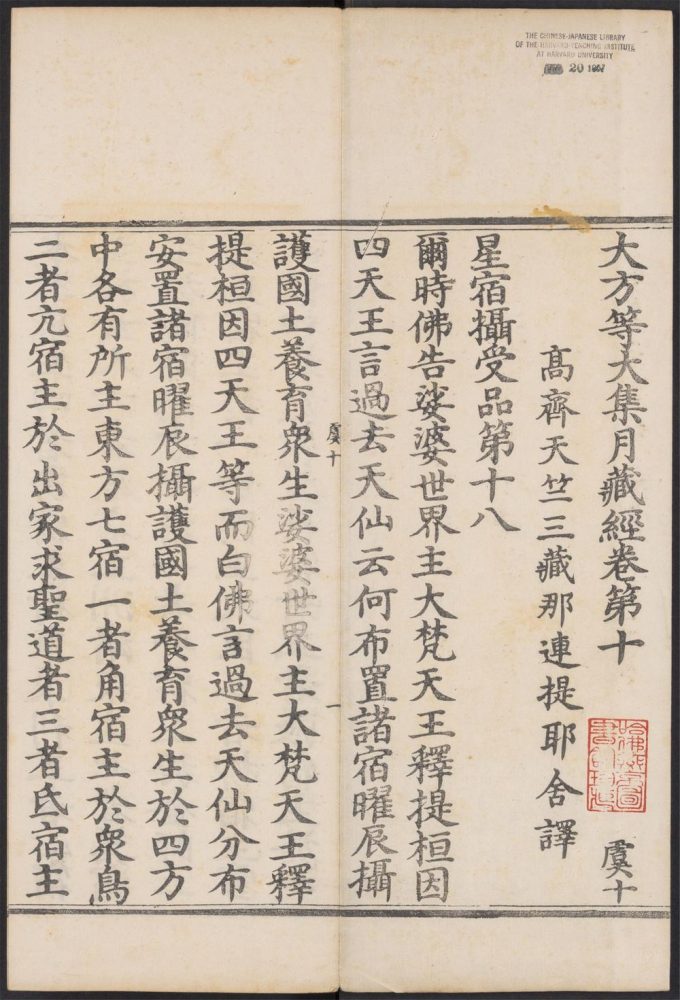 THE CHINESE-JAPANESE LIBRARY
OF THE HARVARD-YENCHING INSTITUTE
AT HARVARD UNIVERSITY
20 1947
大方等大集月藏經卷第十
虞十
髙齊天竺三藏那連提耶舍譯
星宿攝受品第十八
爾時佛告娑婆世界主大梵天王釋提桓因
四天王言過去天仙云何布置諸宿曜辰攝
護國土養育衆生娑婆世界主大梵天王釋
虞十
一
提桓因四天王等而白佛言過去天仙分布
安置諸宿曜辰攝護國土養育衆生於四方
中各有所主東方七宿一者角宿主於衆鳥
二者亢宿主於出家求聖道者三者氐宿主